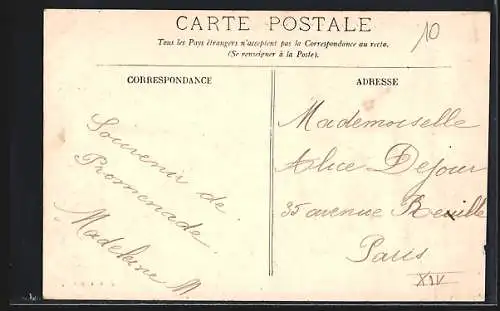 CARTE POSTALE
10
Tous les Pays étrangers n'acceptent pas la Correspondance au recto.
(Se renseigner à la Poste).
CORRESPONDANCE
Souvenir de
Promenade.
Madeleine M
ADRESSE
Mademoiselle
Alice Dejour
35 avenue
Paris
XIV